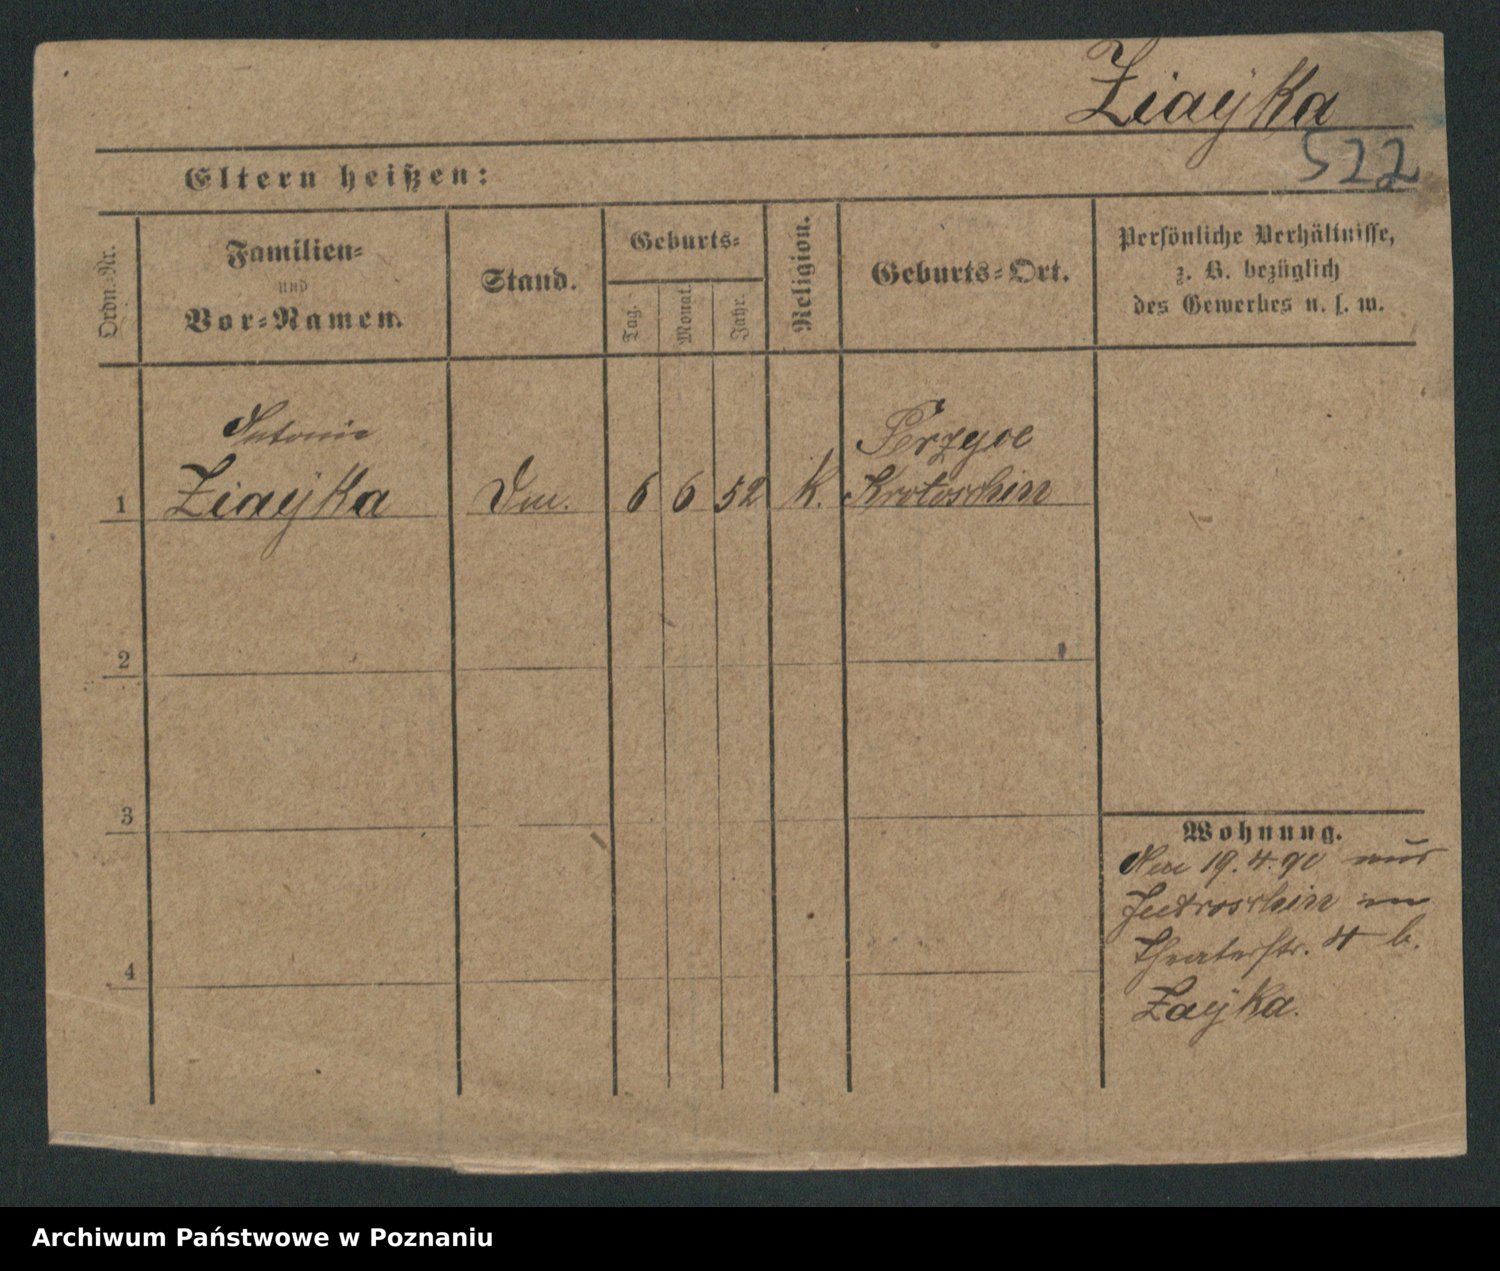 Ziaÿka
522
Eltern heißen:
Ordn.-Nr.
Familien-
und
Vor-Namen.
Stand.
Geburts-
Tag.
Monat.
Jahr.
Religion.
Geburts-Ort.
Persönliche Verhältnisse,
z. B. bezüglich
des Gewerbes u. s. w.
Antonie
Perzyce
1 Ziaÿka 6 6 52 K. Krotoschin
2
3
4
Wohnung.
19.4.90 aus
Jutroschin
Theaterstr. 4 b.
Zaÿka.
Archiwum Państwowe w Poznaniu